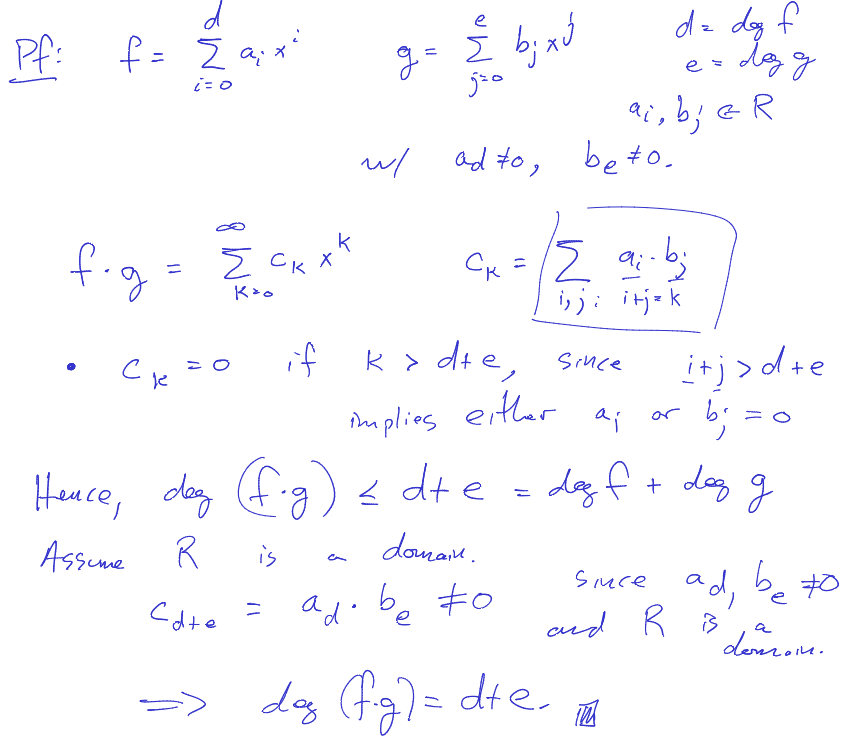 Pf: f = ∑_{i=0}^{d} a_i x^i    g = ∑_{j=0}^{e} b_j x^j    d = deg f
e = deg g
a_i, b_j ∈ R
w/ a_d ≠ 0, b_e ≠ 0.
f · g = ∑_{k=0}^{∞} c_k x^k    c_k = ∑_{i,j: i+j=k} a_i · b_j
• c_k = 0 if k > d+e, since i+j > d+e
implies either a_i or b_j = 0
Hence, deg (f·g) ≤ d+e = deg f + deg g
Assume R is a domain.
c_{d+e} = a_d · b_e ≠ 0    since a_d, b_e ≠ 0
and R is a
domain.
⟹ deg (f·g) = d+e.